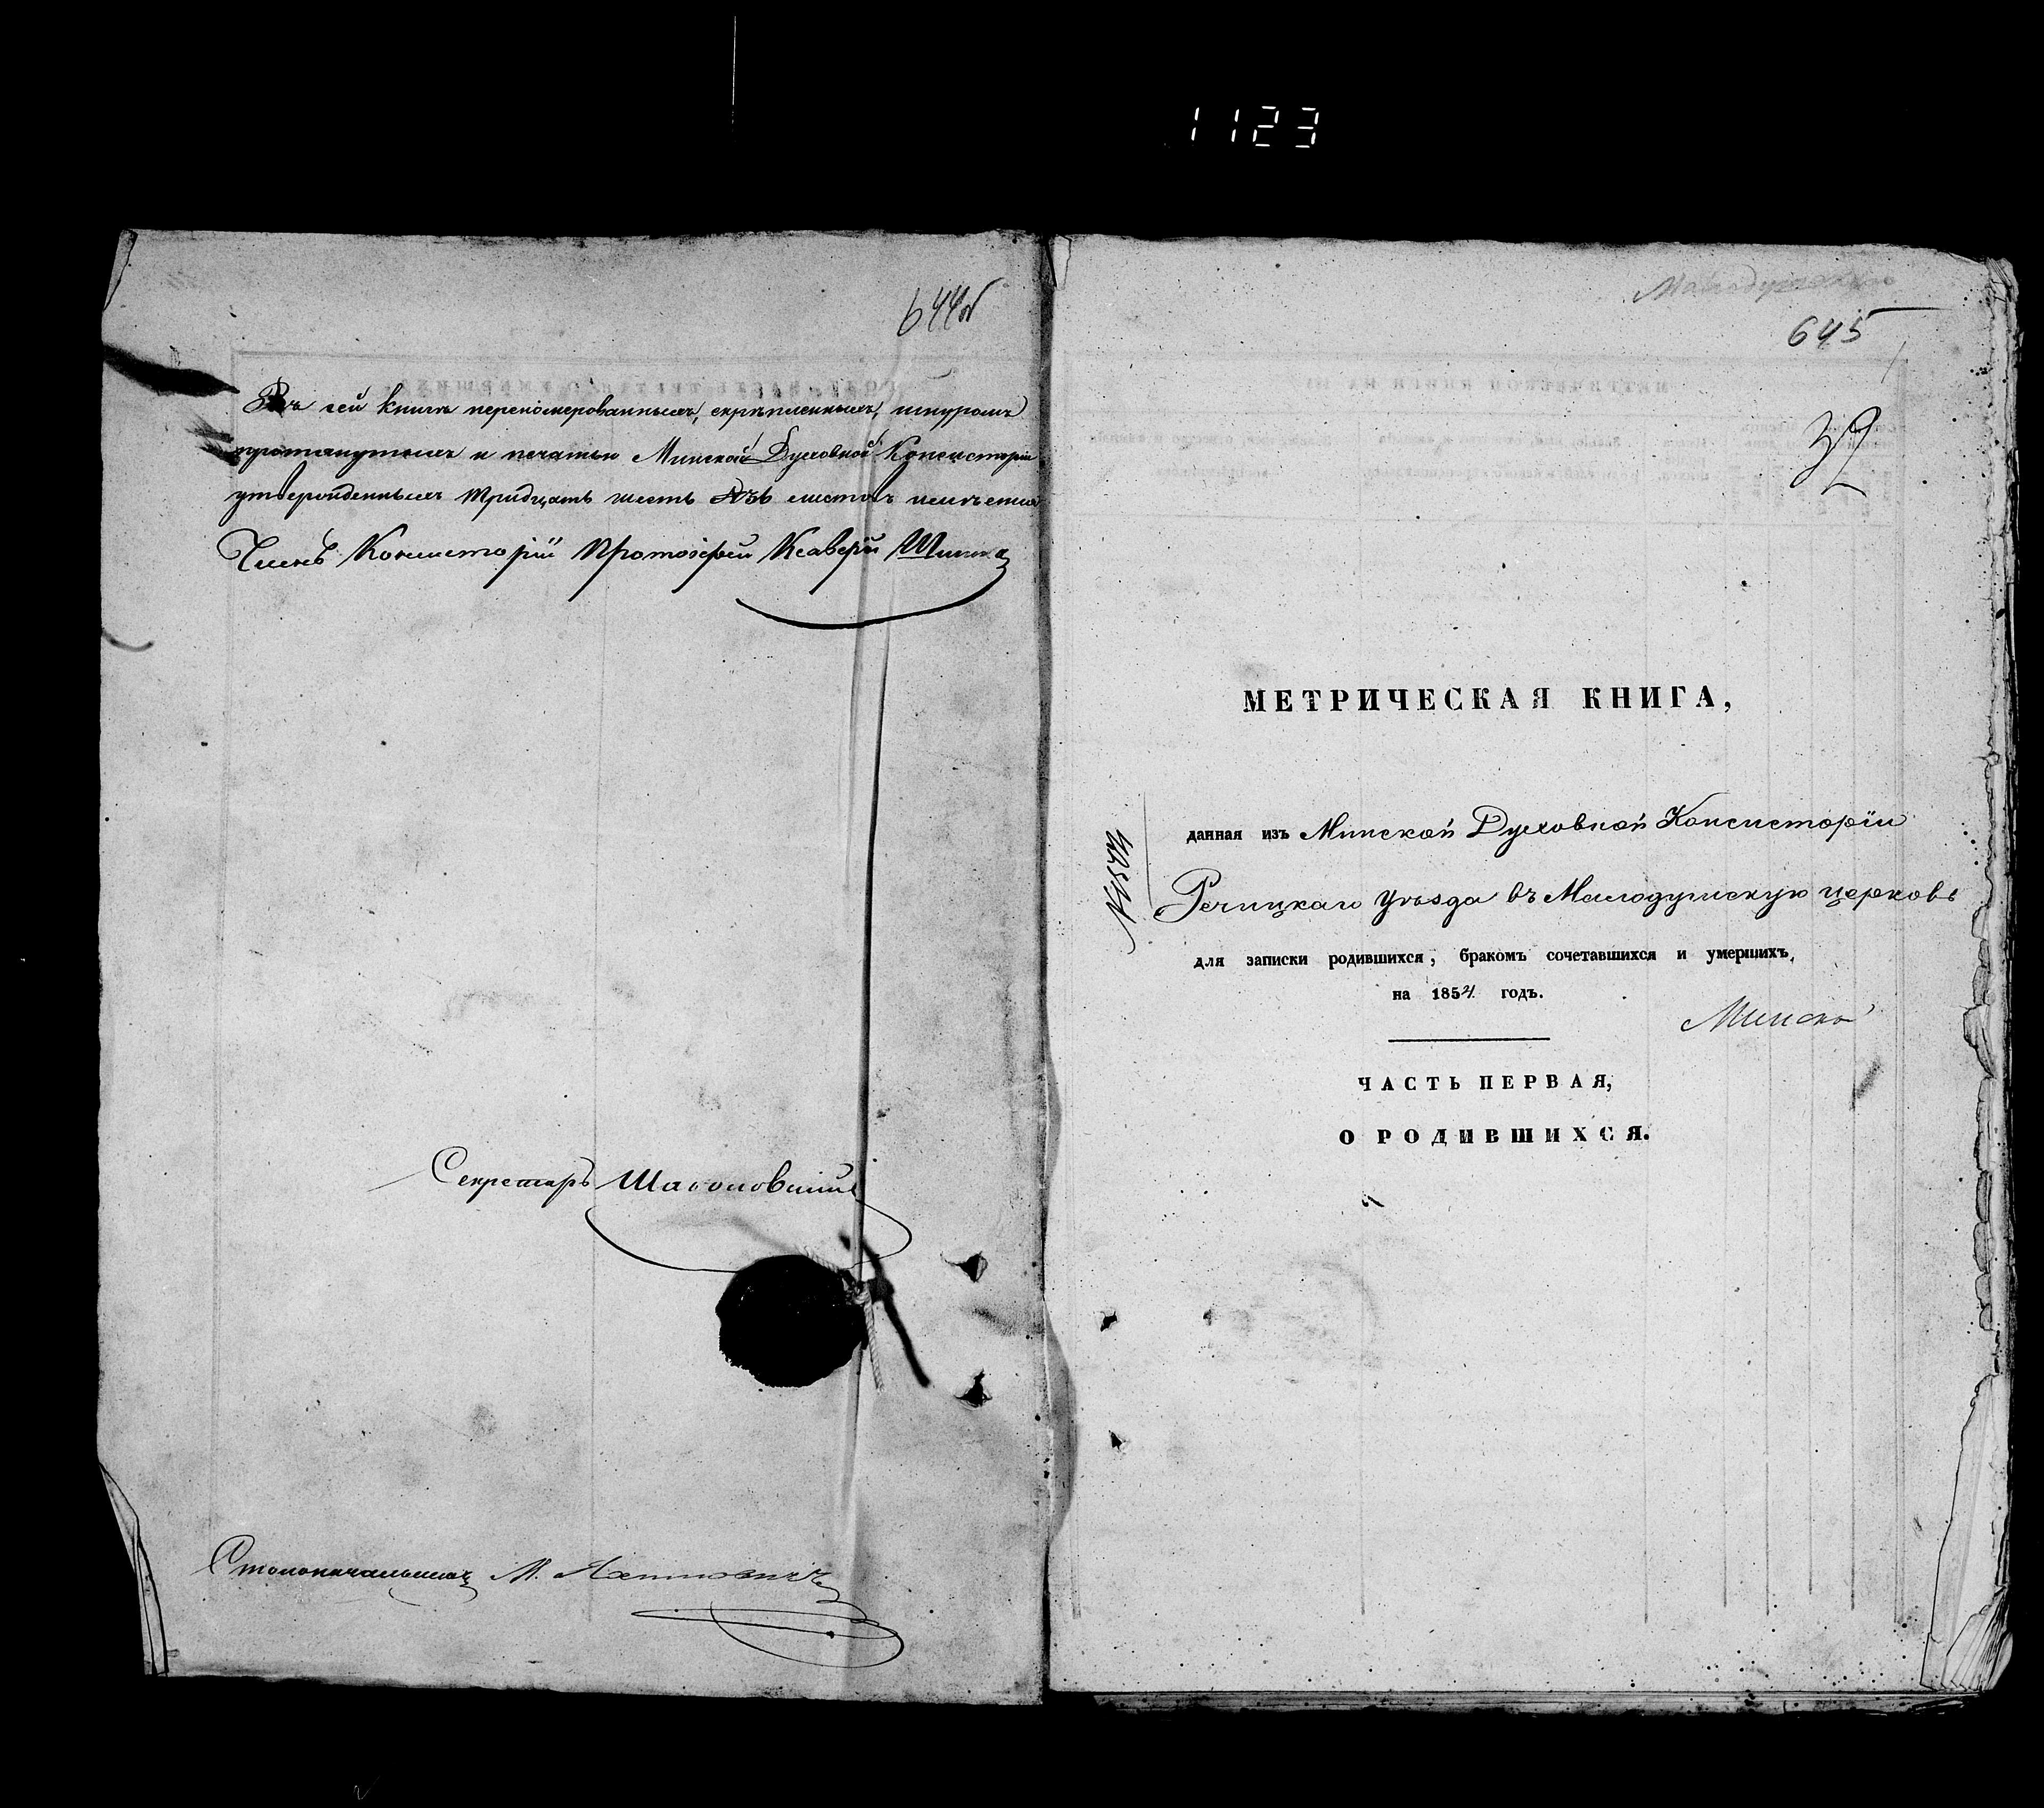 1123
644об
Въ сей книгѣ перенумерованныхъ, скрѣпленныхъ, шнуромъ
протянутыхъ и печатью Минской Духовной Консисторіи
утвержденныхъ тридцать шесть №36 листовъ имѣется
Членъ Консисторіи Протоіерей Ксаверій
Секретарь
Столоначальникъ М.
645
32
МЕТРИЧЕСКАЯ КНИГА,
данная изъ Минской Духовной Консисторіи
Речицкаго уѣзда въ Малодушскую церковь
для записки родившихся, бракомъ сочетавшихся и умершихъ,
на 1854 годъ.
Минска
ЧАСТЬ ПЕРВАЯ,
О РОДИВШИХСЯ.